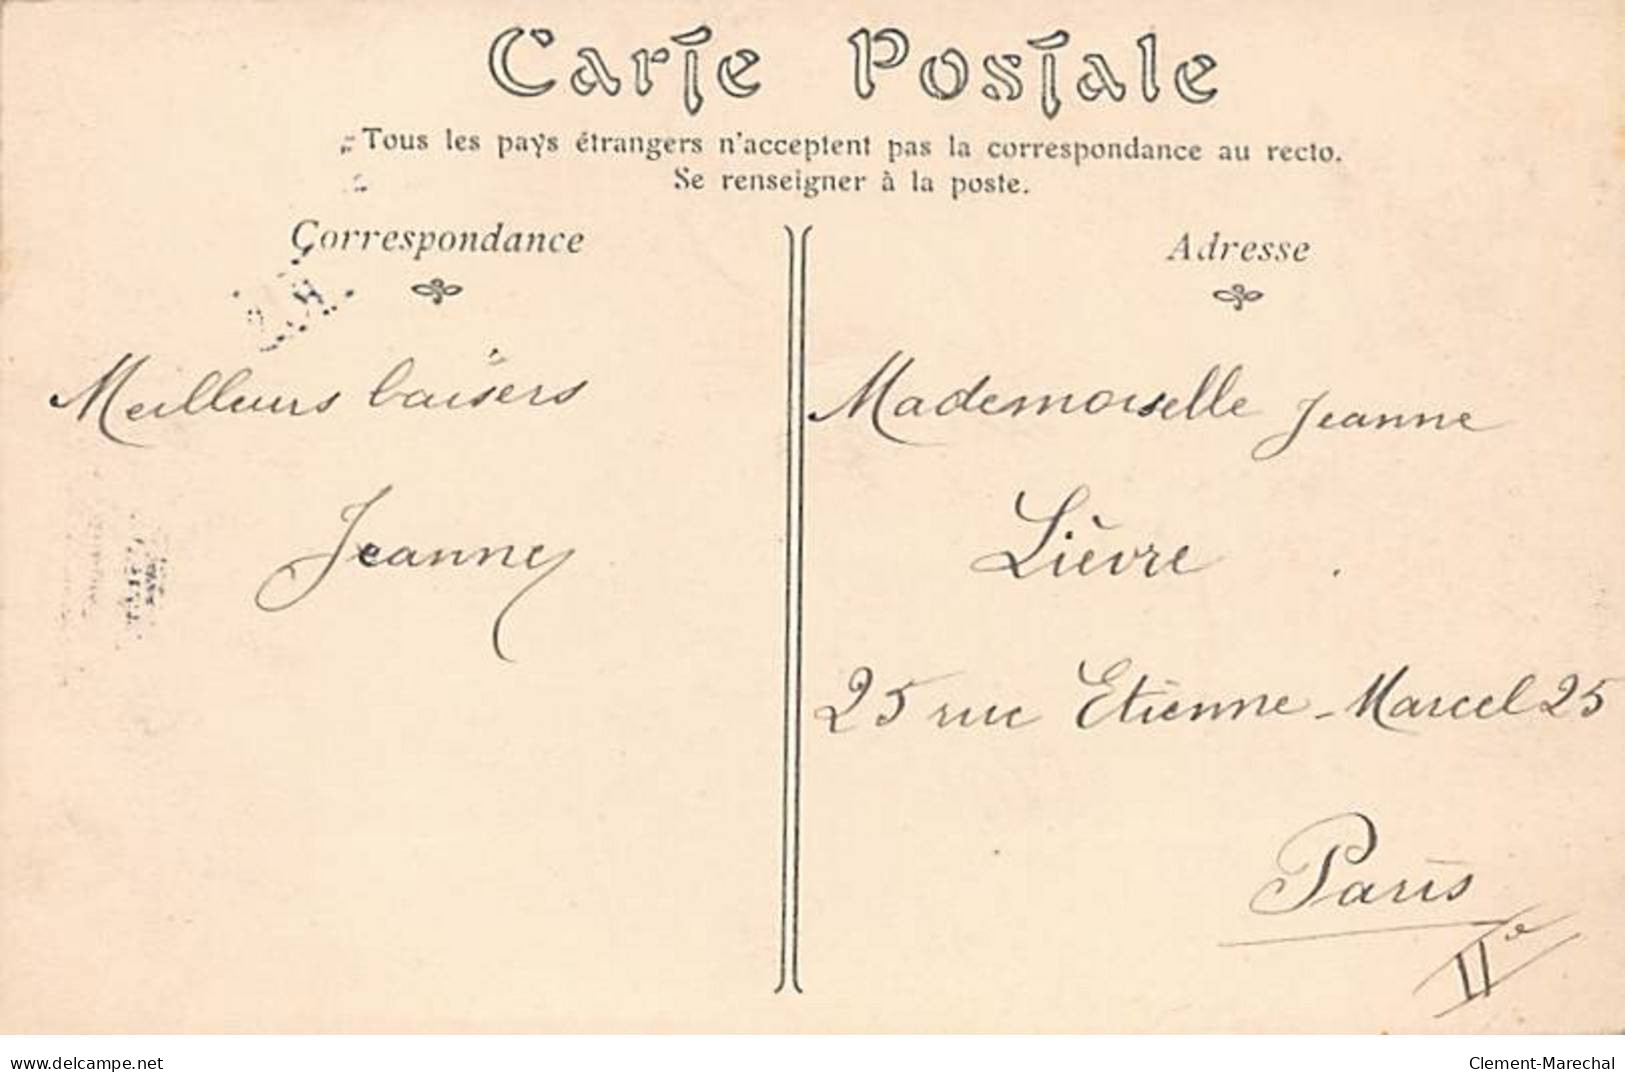 Carte Postale
Tous les pays étrangers n'acceptent pas la correspondance au recto.
Se renseigner à la poste.
Correspondance
Meilleurs baisers
Jeanne
Adresse
Mademoiselle Jeanne
Lièvre
25 rue Etienne-Marcel 25
Paris
IIe
www.delcampe.net
Clement-Marechal